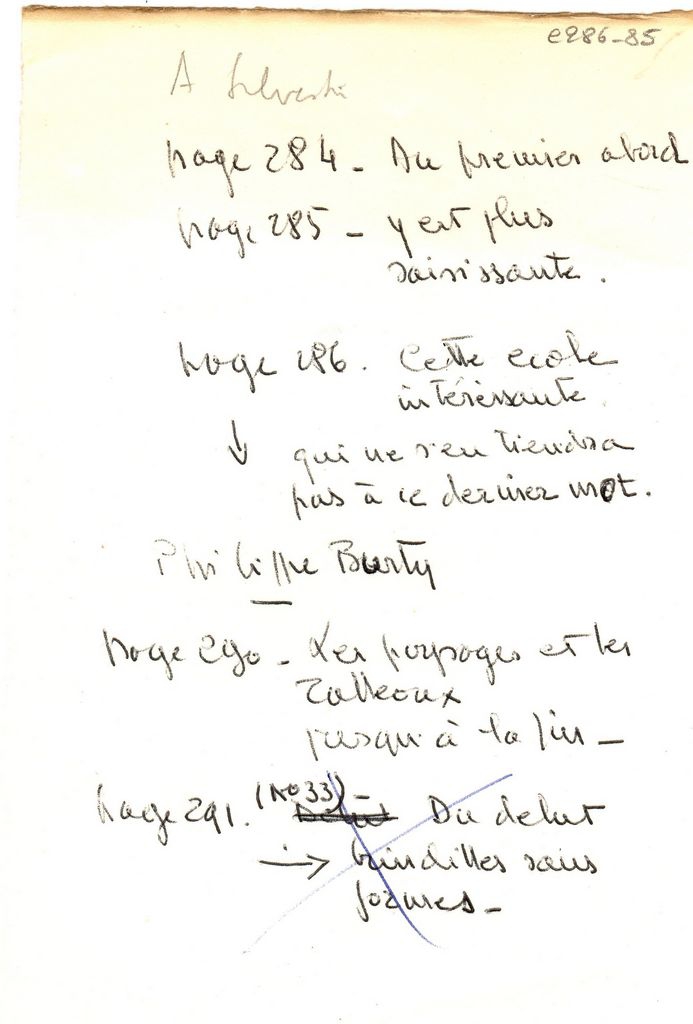 e286-85
A Silvestre
page 284 - Au premier abord
page 285 - y est plus
saisissante.
page 286. Cette ecole
intéressante
↓ qui ne s'en tiendra
pas à ce dernier mot.
Philippe Burty
page 290 - Les paysages et les
Tableaux
jusqu'à la fin -
page 291. (No 33) - Début Du debut
→ brindilles sans
formes -